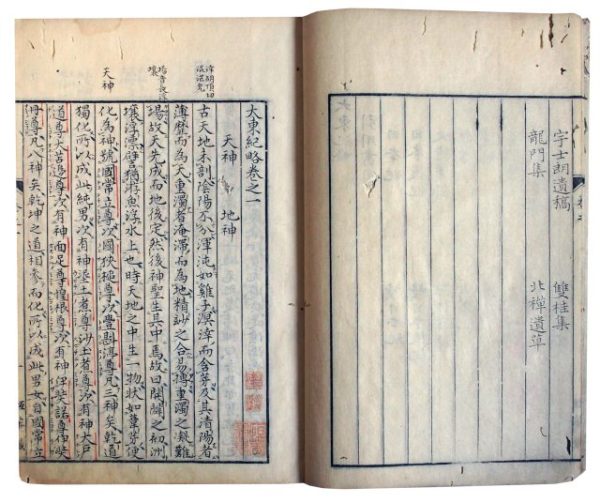 宇士朗遺稿 雙桂集
龍門集 北禅遺草
大東紀略卷之一
天神 地神
涬胡頂切
古天地未剖陰陽不分渾沌如雞子溟涬而含芽及其清陽者
薄靡而為天重濁者淹滯而為地精妙之合易摶重濁之凝難
竭故天先成而地後定然後神聖生其中焉故曰開闢之初洲
壤浮漂譬猶游魚浮水上也時天地之中生一物狀如葦芽便
天神
化為神號國常立尊次國狹槌尊次豊斟渟尊凡三神矣乾道
獨化所以成此純男次有神埿土煮尊沙土煮尊次有神大戸
道尊大苫邊尊次有神面足尊惶根尊次有神伊奘諾尊伊奘
冊尊凡八神矣乾坤之道相參而化所以成此男女自國常立